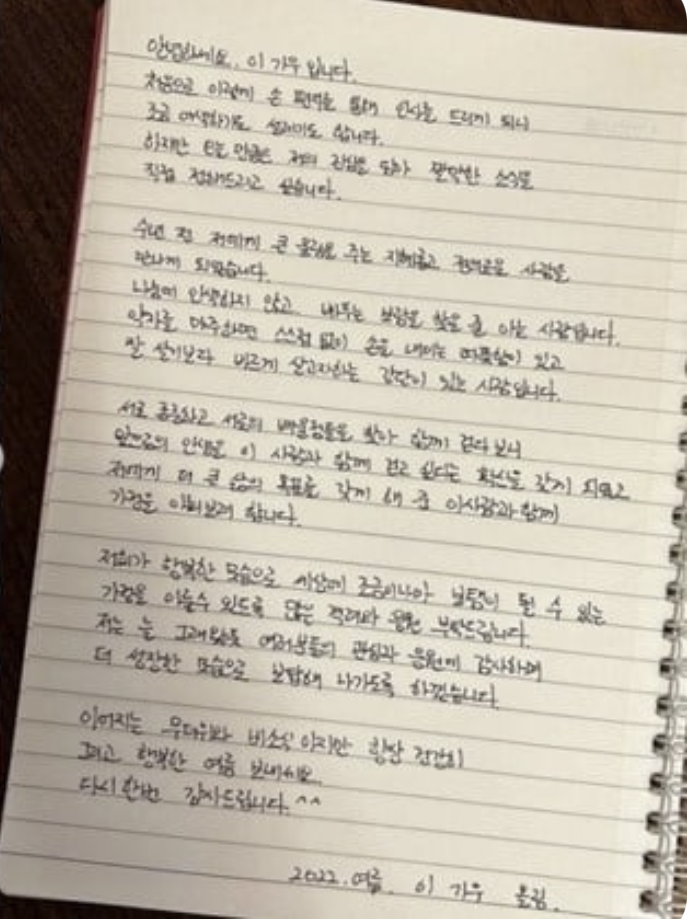 안녕하세요, 이 가우 입니다.
처음으로 이렇게 손 편지를 통해 인사를 드리게 되니
조금 어색하기도 설레이도 합니다.
하지만 오늘 만큼은 저의 진심을 담아 말씀한 소식을
직접 전해드리고 싶습니다.
수년 전 저에게 큰 울림을 주는 지혜롭고 현명로운 사람을
만나게 되었습니다.
나눔에 인색하지 않고, 베푸는 보람을 찾을 줄 아는 사람입니다.
약자를 마주하면 스스럼 없이 손을 내미는 따뜻함이 있고
잘 살기보다 바르게 살고자하는 강단이 있는 사람입니다.
서로 존중하고 서로의 배울점들을 찾아 함께 걷다 보니
앞으로의 인생을 이 사람과 함께 걷고 싶다는 확신을 갖게 되었고
저에게 더 큰 삶의 목표를 갖게 해 준 이사람과 함께
가정을 이뤄보려 합니다.
저희가 행복한 모습으로 세상에 조금이나마 보탬이 될 수 있는
가정을 이룰수 있도록 많은 격려와 응원 부탁드립니다.
저는 늘 그래왔듯 여러분들의 관심과 응원에 감사하며
더 성장한 모습으로 보답해 나가도록 하겠습니다.
이어지는 무더위와 비소식 이지만 항상 건강히
그리고 행복한 여름 보내세요.
다시 한번 감사드립니다. ^^
2022. 여름. 이 가우 올림.